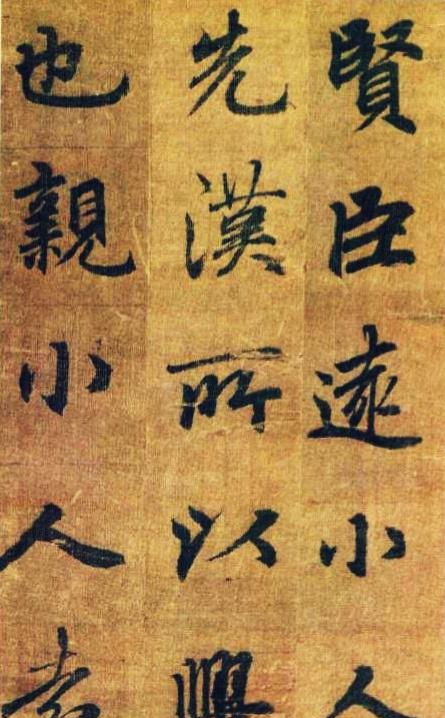 賢臣遠小人
先漢所以興
也親小人